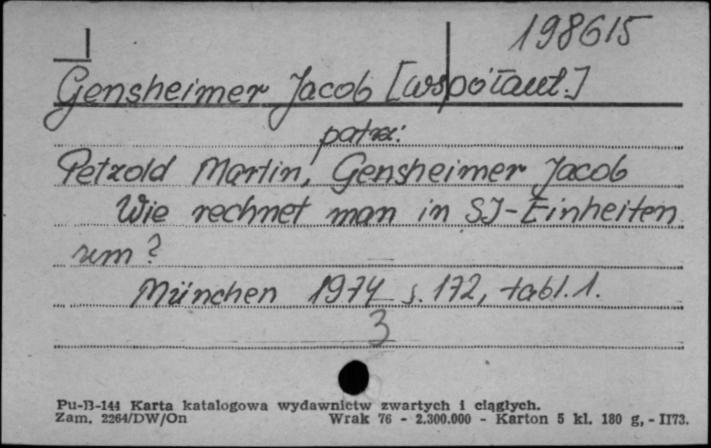 198615
Gensheimer Jacob [współaut.]
patrz:
Petzold Martin, Gensheimer Jacob
Wie rechnet man in SJ-Einheiten
um?
München 1974 s. 172, tabl. 1.
3
Pu-B-144 Karta katalogowa wydawnictw zwartych i ciągłych.
Zam. 2264/DW/On Wrak 76 - 2.300.000 - Karton 5 kl. 180 g, - II73.